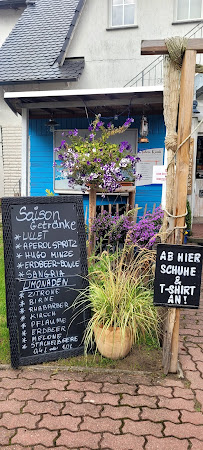 Saison
Getränke
* LILLET
* APEROLSPRITZ
* HUGO MINZE
* ERDBEER-BOWLE
* SANGRIA
LIMONADEN
* ZITRONE
* BIRNE
* RHABARBER
* KIRSCH
* PFLAUME
* ERDBEER
* MELONE
* STACHELBEERE
AB HIER
SCHUHE
& T-SHIRT
AN!